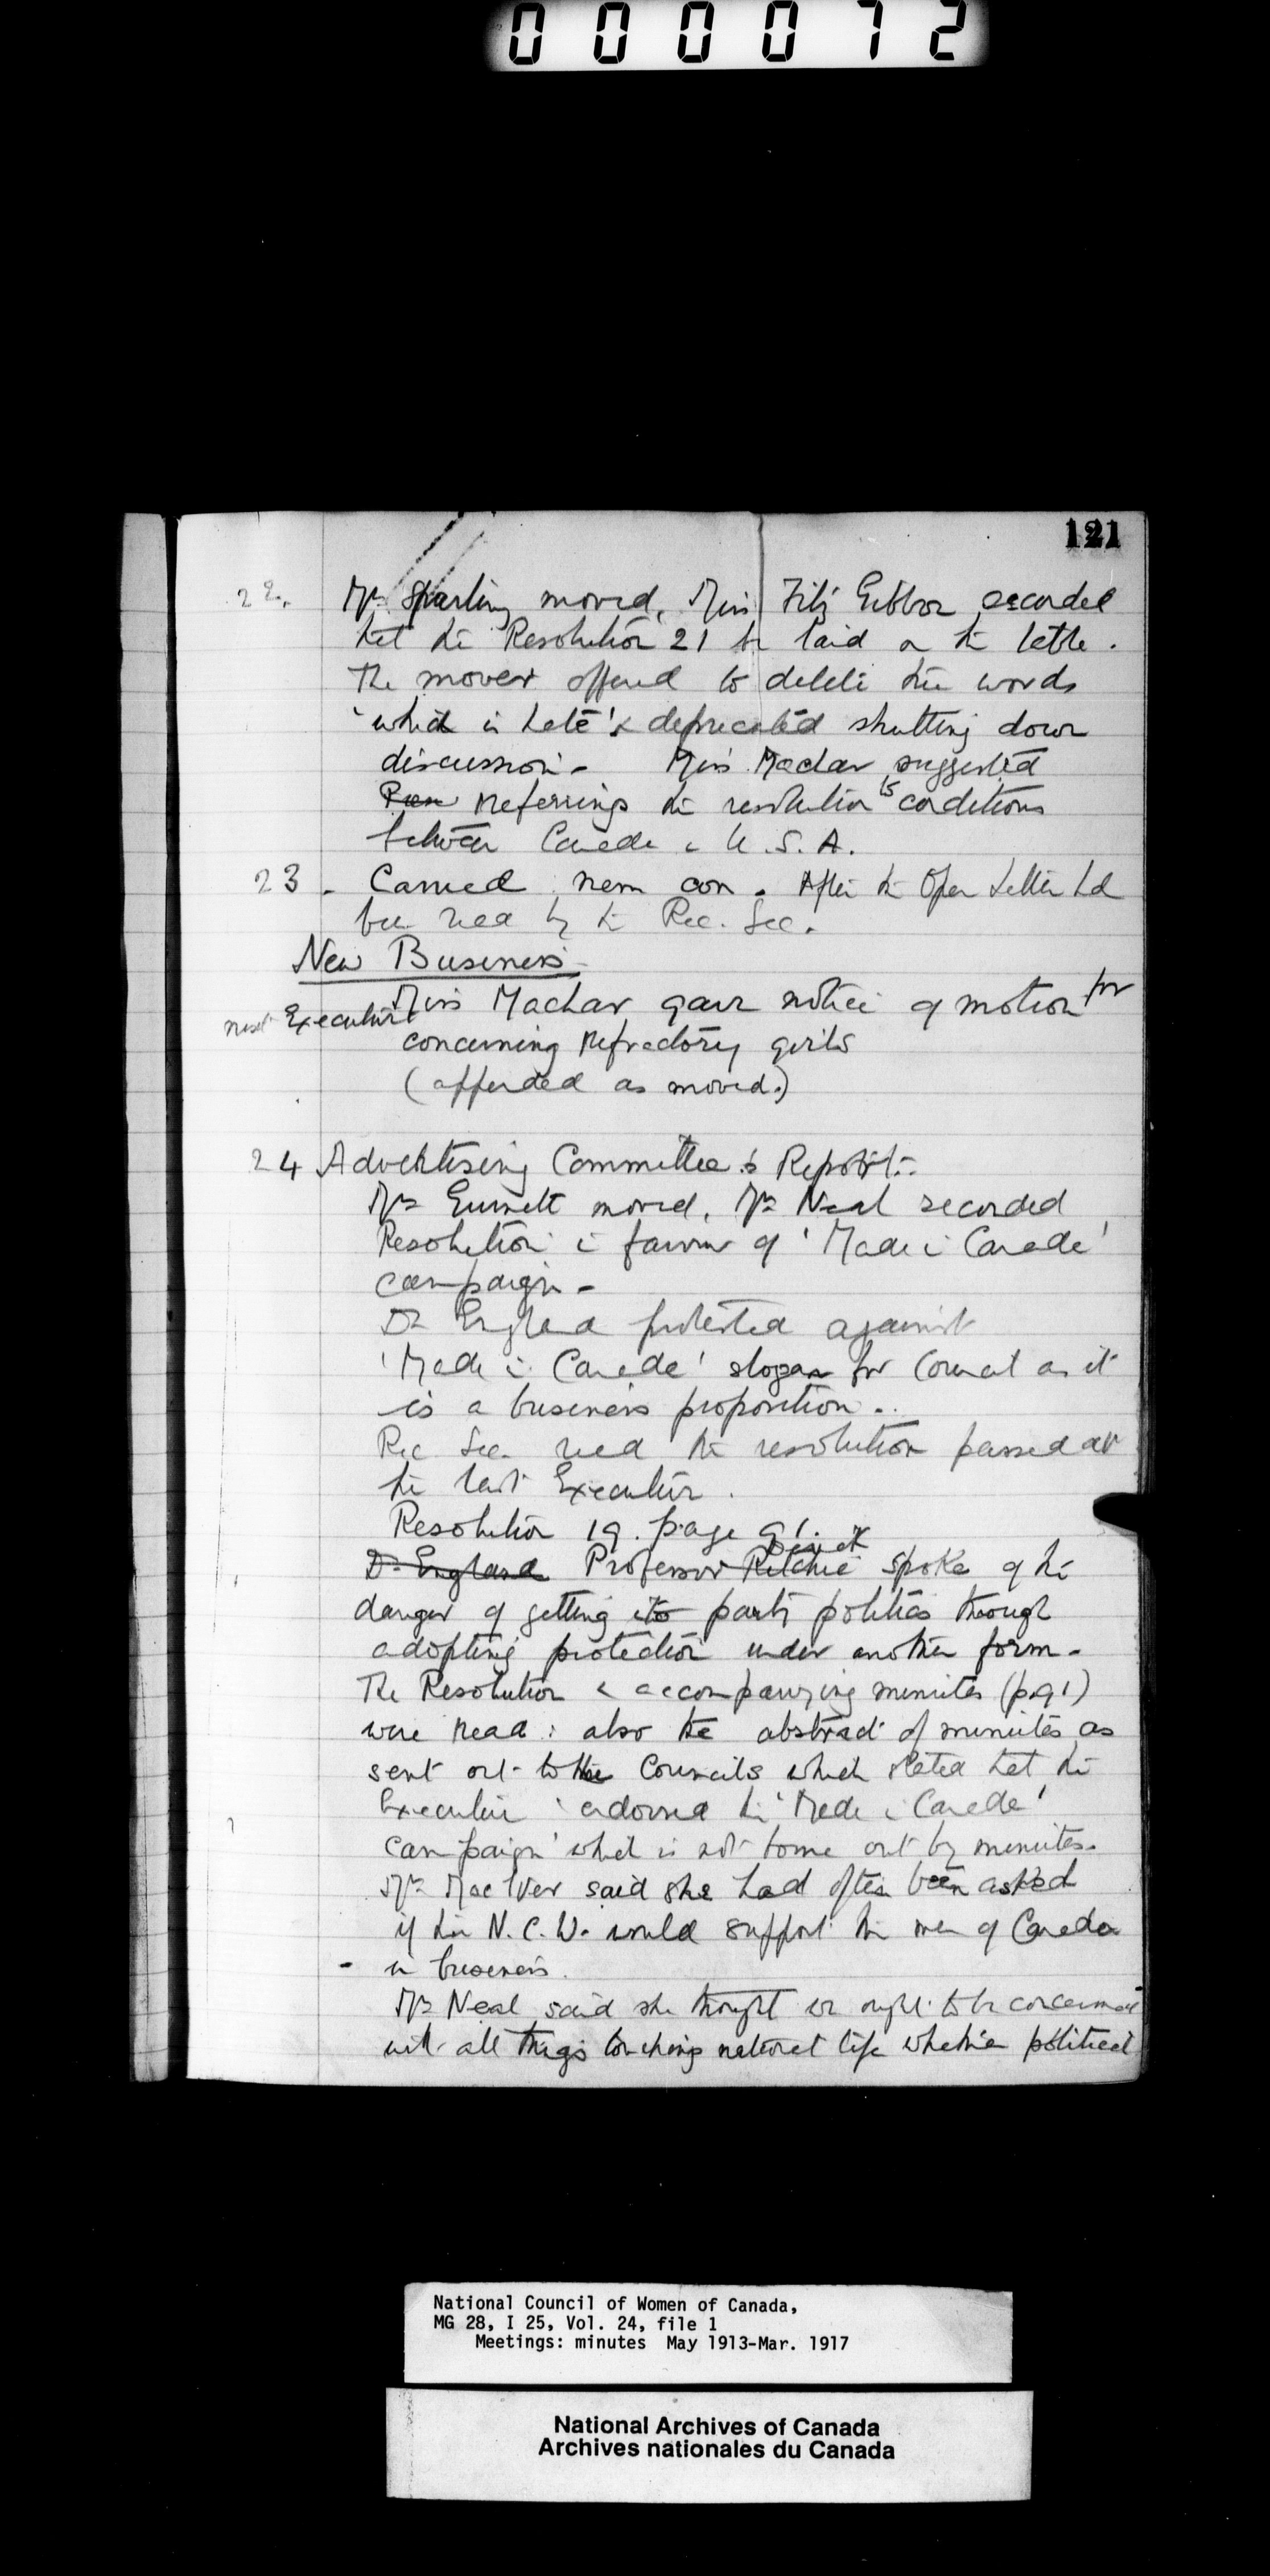 000072
121
22. Mrs Sparling moved, Miss Fitz Gibbon seconded
that the Resolution 21 be laid on the table.
The mover offered to delete the words
'which in hate' & deprecated shutting down
discussion - Miss Machar suggested
referring the resolution to conditions
between Canada & U.S.A.
23. Carried nem con. After the Open Letter had
been read by the Rec. Sec.
New Business
Miss Machar gave notice of motion for
next Executive
concerning refractory girls
(appended as moved.)
24 Advertising Committee's Report:-
Mrs Gurnett moved, Mrs Neal seconded
Resolution in favour of 'Made in Canada'
campaign -
Dr England protested against
'Made in Canada' slogan for Council as it
is a business proposition..
Rec Sec. read the resolution passed at
the last Executive.
Resolution 19. page 91.
Dr England Professor Ritchie spoke of the
danger of getting into party politics through
adopting protection under another form -
The Resolution & accompanying minutes (p.91)
were read: also the abstract of minutes as
sent out to the Councils which stated that the
Executive 'endorsed the 'Made in Canada'
campaign' which is not borne out by minutes.
Mrs MacIver said she had often been asked
if the N.C.W. would support the men of Canada
- in business.
Mrs Neal said she thought we ought to be concerned
with all things touching national life whether political
National Council of Women of Canada,
MG 28, I 25, Vol. 24, file 1
Meetings: minutes May 1913-Mar. 1917
National Archives of Canada
Archives nationales du Canada